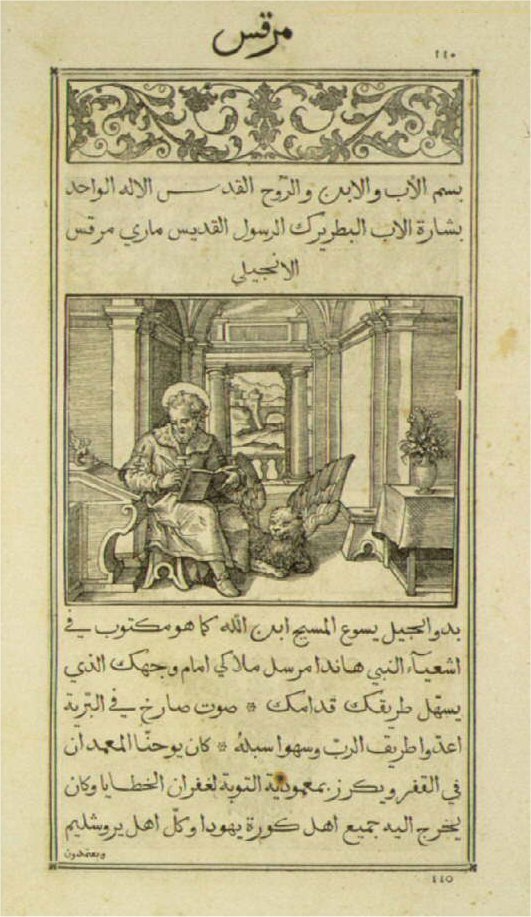 مرقس
١١٠
بسم الأب والابن والرّوح القدس الاله الواحد
بشارة الاب البطريرك الرسول القديس ماري مرقس
الانجيلي
بدو انجيل يسوع المسيح ابن الله كما هو مكتوب في
اشعيآء النبي هاندا مرسل ملاكي امام وجهك الذي
يسهّل طريقك قدامك * صوت صارخ في البّرية
اعدّوا طريق الربّ وسهوا سبلهُ * كان يوحنّا المعمدان
في القفر ويكرز بمعموديّة التوبة لغفران الخطايا وكان
يخرج اليه جميع اهل كورة يهودا وكلّ اهل يروشليم
ويعتمدون
110